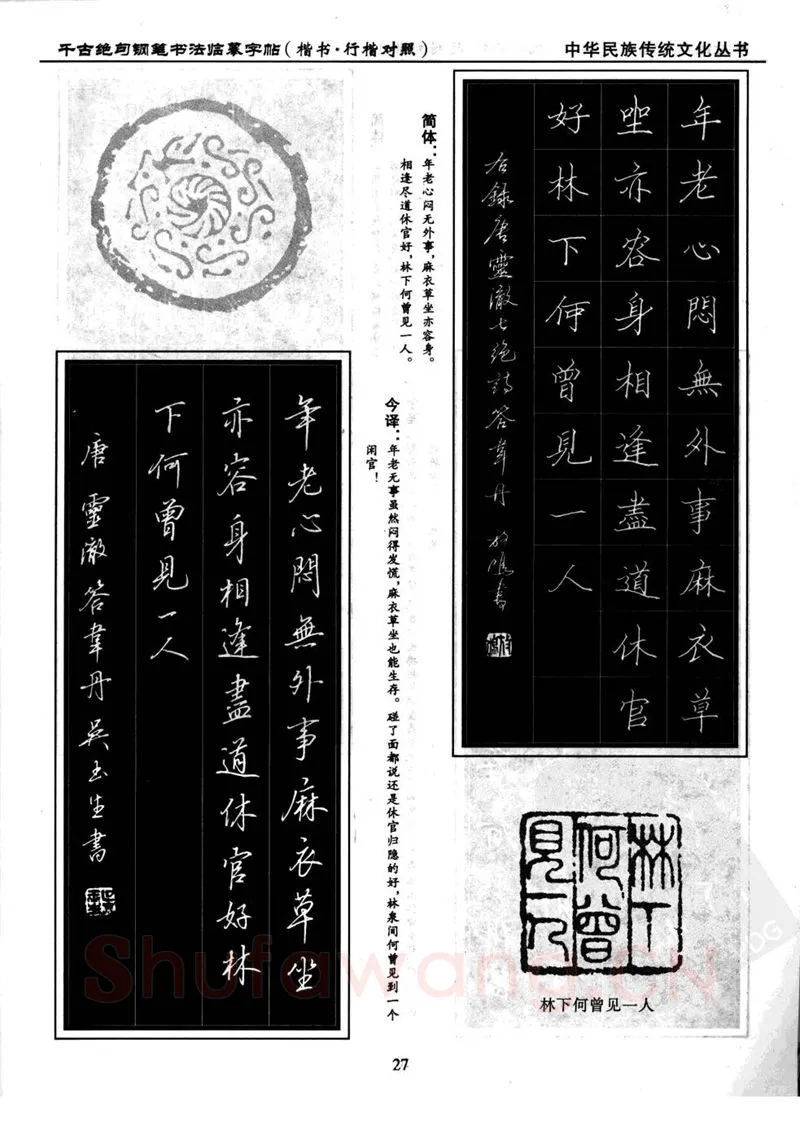 千古绝句钢笔书法临摹字帖(楷书·行楷对照)
中华民族传统文化丛书
年老心悶無外事麻衣草
坐亦容身相逢盡道休官
好林下何曾見一人
右錄唐靈澈七絕詩答韋丹
简体:年老心闷无外事,麻衣草坐亦容身。
相逢尽道休官好,林下何曾见一人。
今译:年老无事虽然闷得发慌,麻衣草坐也能生存。碰了面都说还是休官归隐的好,林泉间何曾见到一个
闲官!
年老心悶無外事麻衣草坐
亦容身相逢盡道休官好林
下何曾見一人
唐靈澈答韋丹吳玉生書
林下
何曾
見一人
林下何曾见一人
27
Shufawang.CN